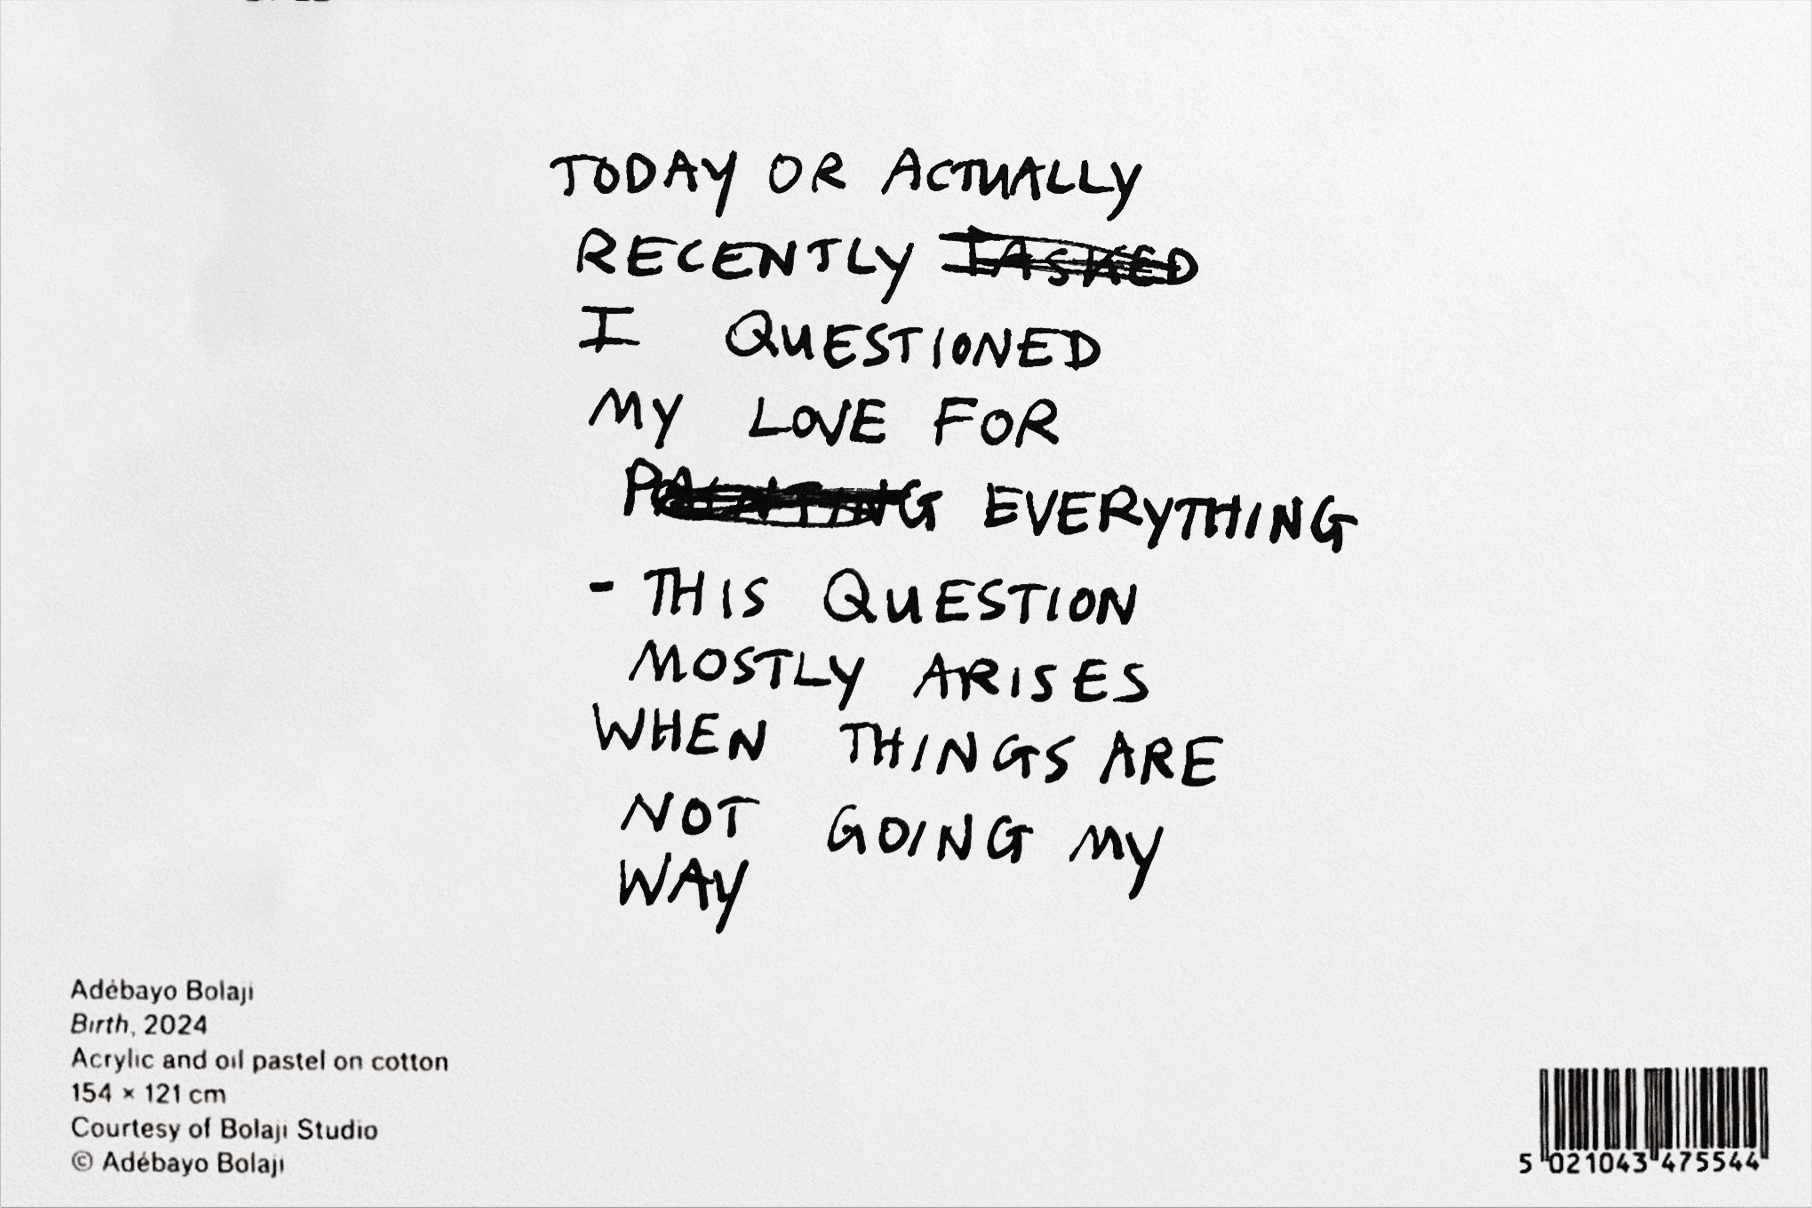 TODAY OR ACTUALLY
RECENTLY I ASKED
I QUESTIONED
MY LOVE FOR
PAINTING EVERYTHING
- THIS QUESTION
MOSTLY ARISES
WHEN THINGS ARE
NOT GOING MY
WAY
Adébayo Bolaji
Birth, 2024
Acrylic and oil pastel on cotton
154 × 121 cm
Courtesy of Bolaji Studio
© Adébayo Bolaji
5 021043 475544